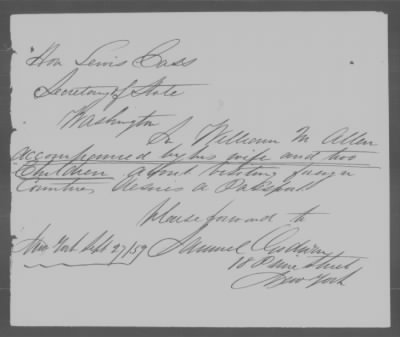 Hon Lewis Cass
Secretary of State
Washington
Sr William M Allen
accompanied by his wife and two
Children about visiting foreign
Countries desires a Passport
Please forward to
New York Sept 27/59 Samuel
18 Street
New York